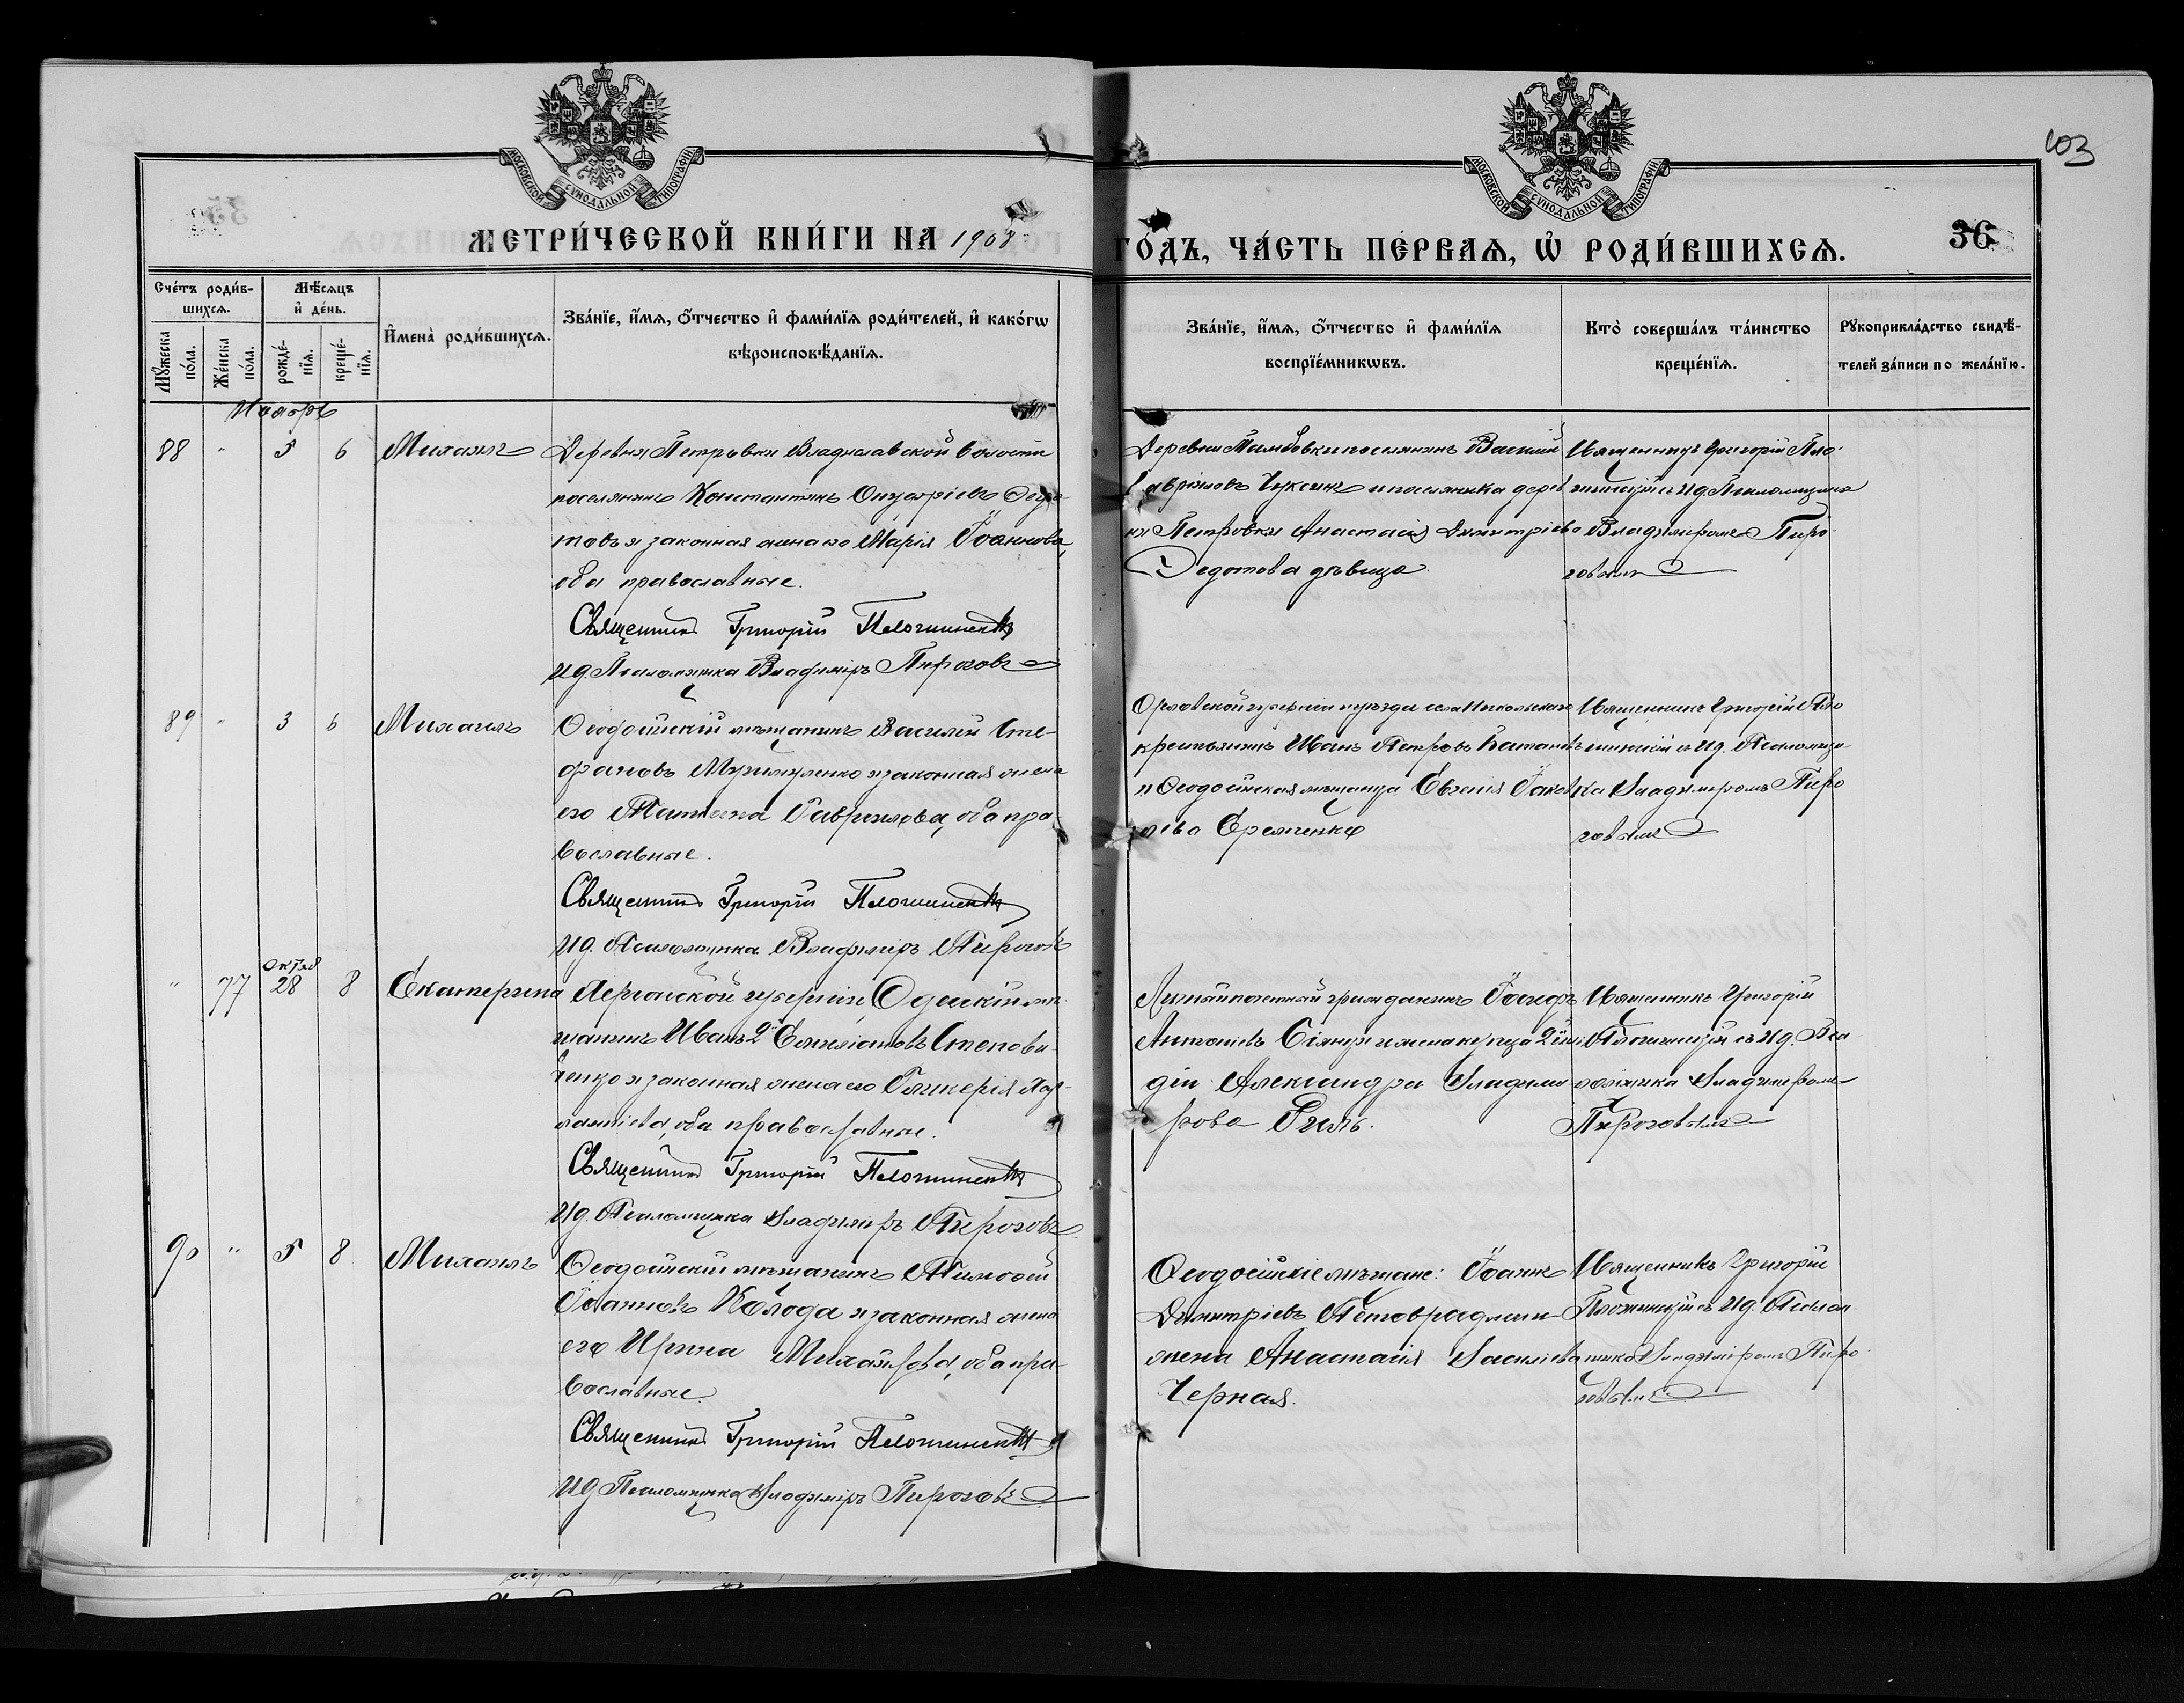 МОСКОВСКОЙ СѴНОДАЛЬНОЙ ТИПОГРАФІИ
МОСКОВСКОЙ СѴНОДАЛЬНОЙ ТИПОГРАФІИ
103
МЕТРИ́ЧЕСКОЙ КНИ́ГИ НА 1908
ГО́ДЪ, ЧА́СТЬ ПЕ́РВАѦ, Ѡ҆ РОДИ́ВШИХСѦ.
36
Сче́тъ роди́вшихсѧ.
Мꙋ́жеска по́ла.
Же́нска по́ла.
Мѣ́сѧцъ и҆ де́нь.
рожде́нїѧ.
креще́нїѧ.
И҆мена̀ роди́вшихсѧ.
Зва́нїе, и҆́мѧ, ѻ҆́тчество и҆ фами́лїѧ роди́телей, и҆ како́гѡ
вѣроисповѣ́данїѧ.
Зва́нїе, и҆́мѧ, ѻ҆́тчество и҆ фами́лїѧ
воспрїе́мникѡвъ.
Кто̀ соверша́лъ та́инство
креще́нїѧ.
Рꙋкоприкла́дство свидѣ́-
телей за́писи по жела́нїю.
Ноябрь
88 " 5 6 Михаилъ
Деревни Петровки Владиславской волости
поселянинъ Константинъ Онуфріевъ Ѳедо-
товъ и законная жена его Марія Іоаннова,
оба православные.
Священникъ Григорій
И д. Псаломщика Владиміръ Пироговъ
Деревни Тамбовки поселянинъ Василій
Гавріиловъ Чуксинъ и поселянка дерев
ни Петровки Анастасія Димитріева
Ѳедотова дѣвица.
Священникъ Григорій
съ И д. Псаломщика
Владиміромъ Пиро-
говымъ
89 " 3 6 Михаилъ
Ѳеодосійскій мѣщанинъ Василій Сте-
фановъ и законная жена
его Татіана Гавріилова, оба пра-
вославные.
Священникъ Григорій
И д. Псаломщика Владиміръ Пироговъ
Орловской губерніи и уѣзда села Никольскаго
крестьянинъ Иванъ Петровъ
и Ѳеодосійская мѣщанка Евгенія Іаков
лева Еременко
Священникъ Григорій
съ И д. Псаломщи-
ка Владиміромъ Пиро
говымъ
" 77 Октяб 28 8 Екатерина
Херсонской губерніи, Одесскій мѣ-
щанинъ Иванъ 2й Емиліановъ Степови-
ченко и законная жена его Гликерія Хар-
лампіева, оба православные.
Священникъ Григорій
И д. Псаломщика Владиміръ Пироговъ
гражданинъ Іосифъ
Антоніевъ и жена купца 2й
Александра Владими-
рова
Священникъ Григорій
съ И д. Пса
ломщика Владиміромъ
Пироговымъ
90 " 5 8 Михаилъ
Ѳеодосійскій мѣщанинъ Тимоѳей
Іоанновъ Колода и законная жена
его Ирина Михайлова, оба пра-
вославные.
Священникъ Григорій
И д Псаломщика Владиміръ Пироговъ
Ѳеодосійскіе мѣщане: Іоаннъ
Димитріевъ и
жена Анастасія Василіева
Черная.
Священникъ Григорій
съ И д. Псалом
щика Владиміромъ Пиро-
говымъ